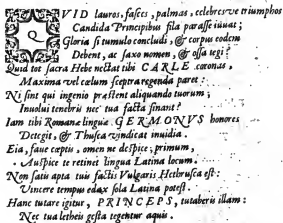 QVID lauros, fasces, palmas, celebresve triumphos
Candida Principibus fila parasse iuuat;
Gloria si tumulo concludi, & corpus eodem
Debent, ac saxo nomen, & ossa tegi?
Quid tot sacra Hebe nectat tibi CARLE coronas,
Maxima vel cælum sceptra regenda paret:
Ni sint qui ingenio præstent aliquando tuorum;
Inuolui tenebris nec tua facta sinant?
Iam tibi Romanæ linguæ GERMONVS honores
Detegit, & Thusca vindicat inuidia.
Eia, faue cæptis, omen ne despice; primum,
Auspice te retinet lingua Latina locum.
Non satis apta tuis factis Vulgaris Hethrusca est:
Vincere tempus edax sola Latina potest.
Hanc tutare igitur, PRINCEPS, tutaberis illam:
Nec tua letheis gesta tegentur aquis.